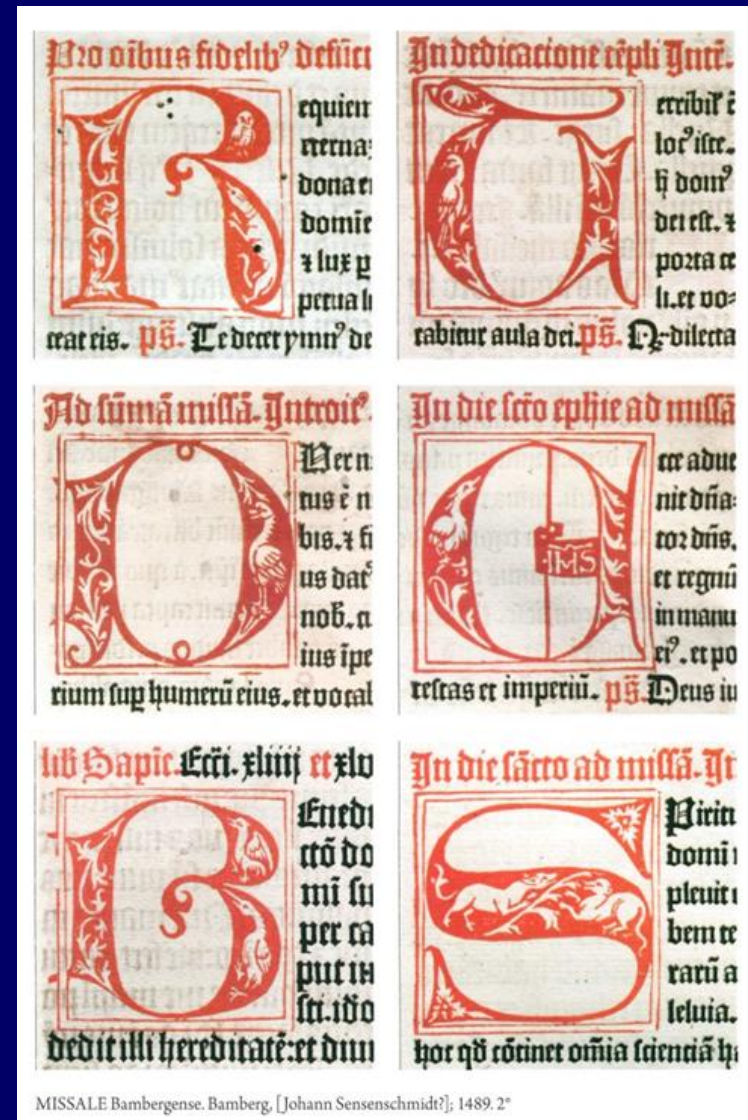 Pro oibus fidelibꝰ defūct
R equiem
eterna:
dona ei
domie
⁊ lux p
petua lu
ceat eis. ps̄. Te decet ymnꝰ de
In dedicacione tēpli Intē.
T erribil' ē
locꝰ iste.
h̄ domꝰ
dei est. ⁊
porta ce
li. et vo⸗
cabitur aula dei. ps̄. Q̄ dilecta
Ad sūmā missā. Introitꝰ.
P Uer n
tus ē n
bis. ⁊ fi
us datꝰ
nob̄. cu
ius īpe
rium sup̱ humerū eius. et vocab
In die scto ephie ad missā
E cce adue
nit dn̄a⸗
tor dn̄s.
et regnū
in manu
eiꝰ. et po
IHS
testas et imperiū. ps̄. Deus iu
lib̄ Sapie. Ecci. xliiij et xlv
B Enedi
ctō do
mī su
per ca
put iu
sti. ido
dedit illi hereditatē: et diui
In die sācto ad missā. It
S Piritu
domi
pleuit
bem te
rarū a
leluia.
hoc qd̄ cōtinet om̄ia scienciā ha
MISSALE Bambergense. Bamberg, [Johann Sensenschmidt?]; 1489. 2°